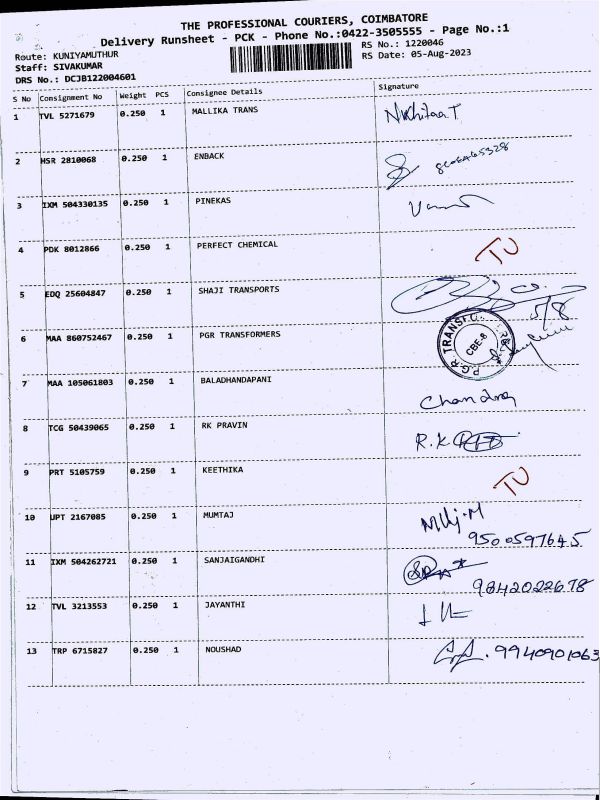 THE PROFESSIONAL COURIERS, COIMBATORE
Delivery Runsheet - PCK - Phone No.:0422-3505555 - Page No.:1
Route: KUNIYAMUTHUR RS No.: 1220046
Staff: SIVAKUMAR RS Date: 05-Aug-2023
DRS No.: DCJB122004601
S No Consignment No Weight PCS Consignee Details Signature
1 TVL 5271679 0.250 1 MALLIKA TRANS
2 HSR 2810068 0.250 1 ENBACK
3 IXM 504330135 0.250 1 PINEKAS
4 PDK 8012866 0.250 1 PERFECT CHEMICAL TU
5 EDQ 25604847 0.250 1 SHAJI TRANSPORTS 5/8
6 MAA 860752467 0.250 1 PGR TRANSFORMERS CBE-8
7 MAA 105061803 0.250 1 BALADHANDAPANI Chandra
8 TCG 50439065 0.250 1 RK PRAVIN R.K
9 PRT 5105759 0.250 1 KEETHIKA TU
10 UPT 2167085 0.250 1 MUMTAJ 9500597645
11 IXM 504262721 0.250 1 SANJAIGANDHI 9842022678
12 TVL 3213553 0.250 1 JAYANTHI
13 TRP 6715827 0.250 1 NOUSHAD 9940901063